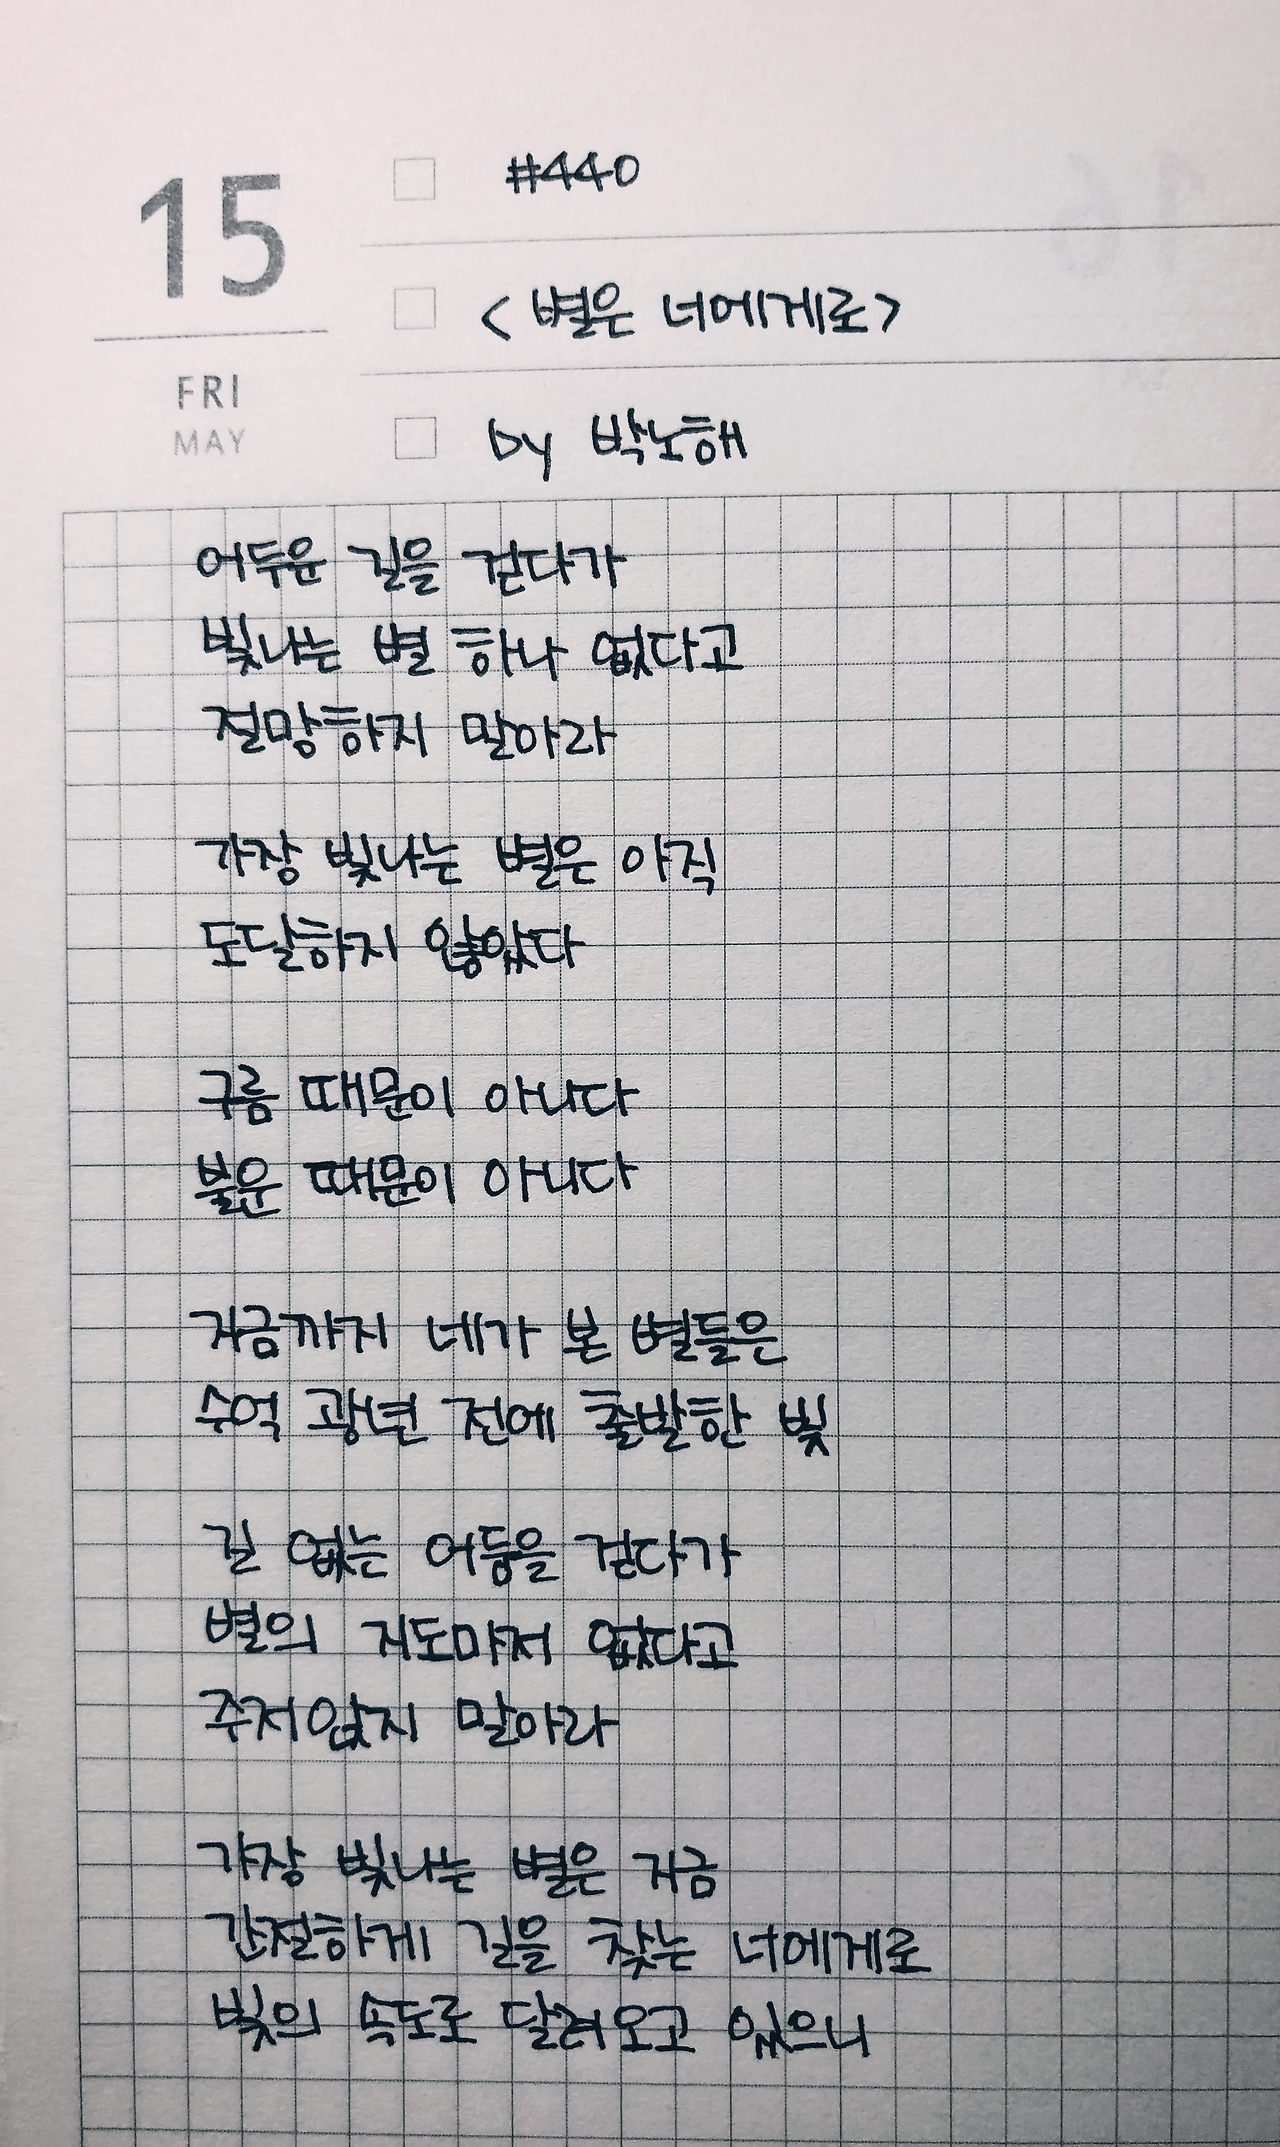 15
FRI
MAY
#440
<별은 너에게로>
by 박노해
어두운 길을 걷다가
빛나는 별 하나 없다고
절망하지 말아라
가장 빛나는 별은 아직
도달하지 않았다
구름 때문이 아니다
불운 때문이 아니다
지금까지 네가 본 별들은
수억 광년 전에 출발한 빛
길 없는 어둠을 걷다가
별의 지도마저 없다고
주저앉지 말아라
가장 빛나는 별은 지금
간절하게 길을 찾는 너에게로
빛의 속도로 달려오고 있으니